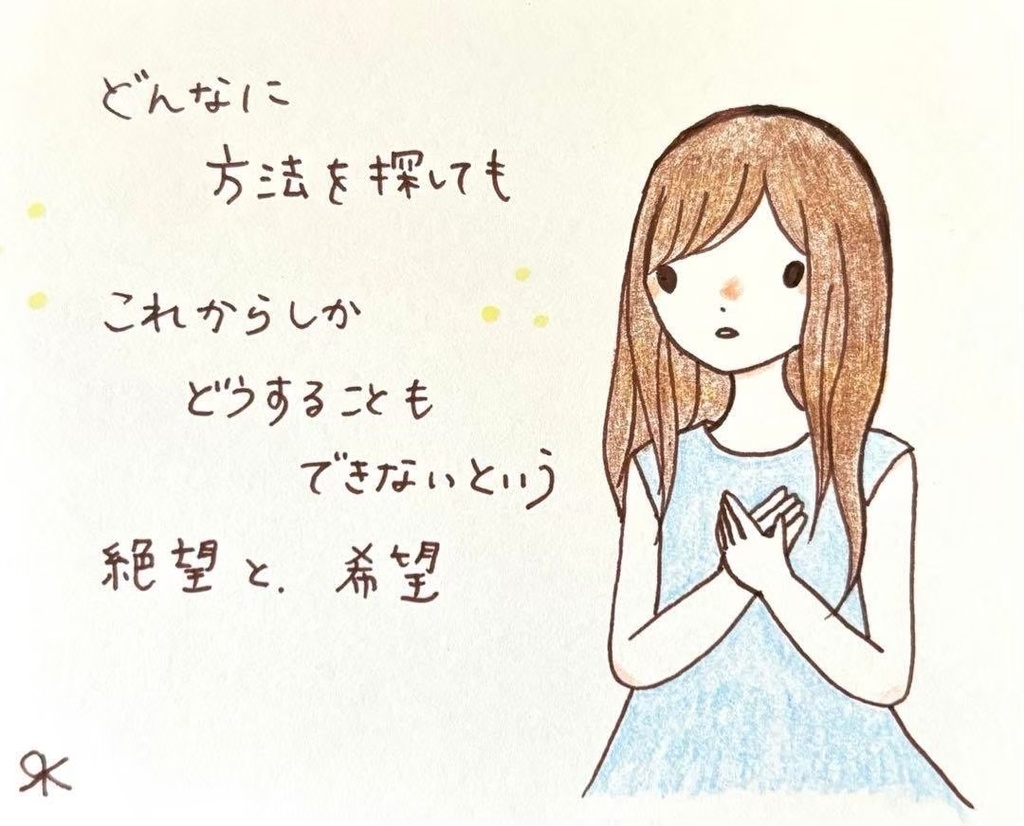 どんなに
方法を探しても
これからしか
どうすることも
できないという
絶望と、希望